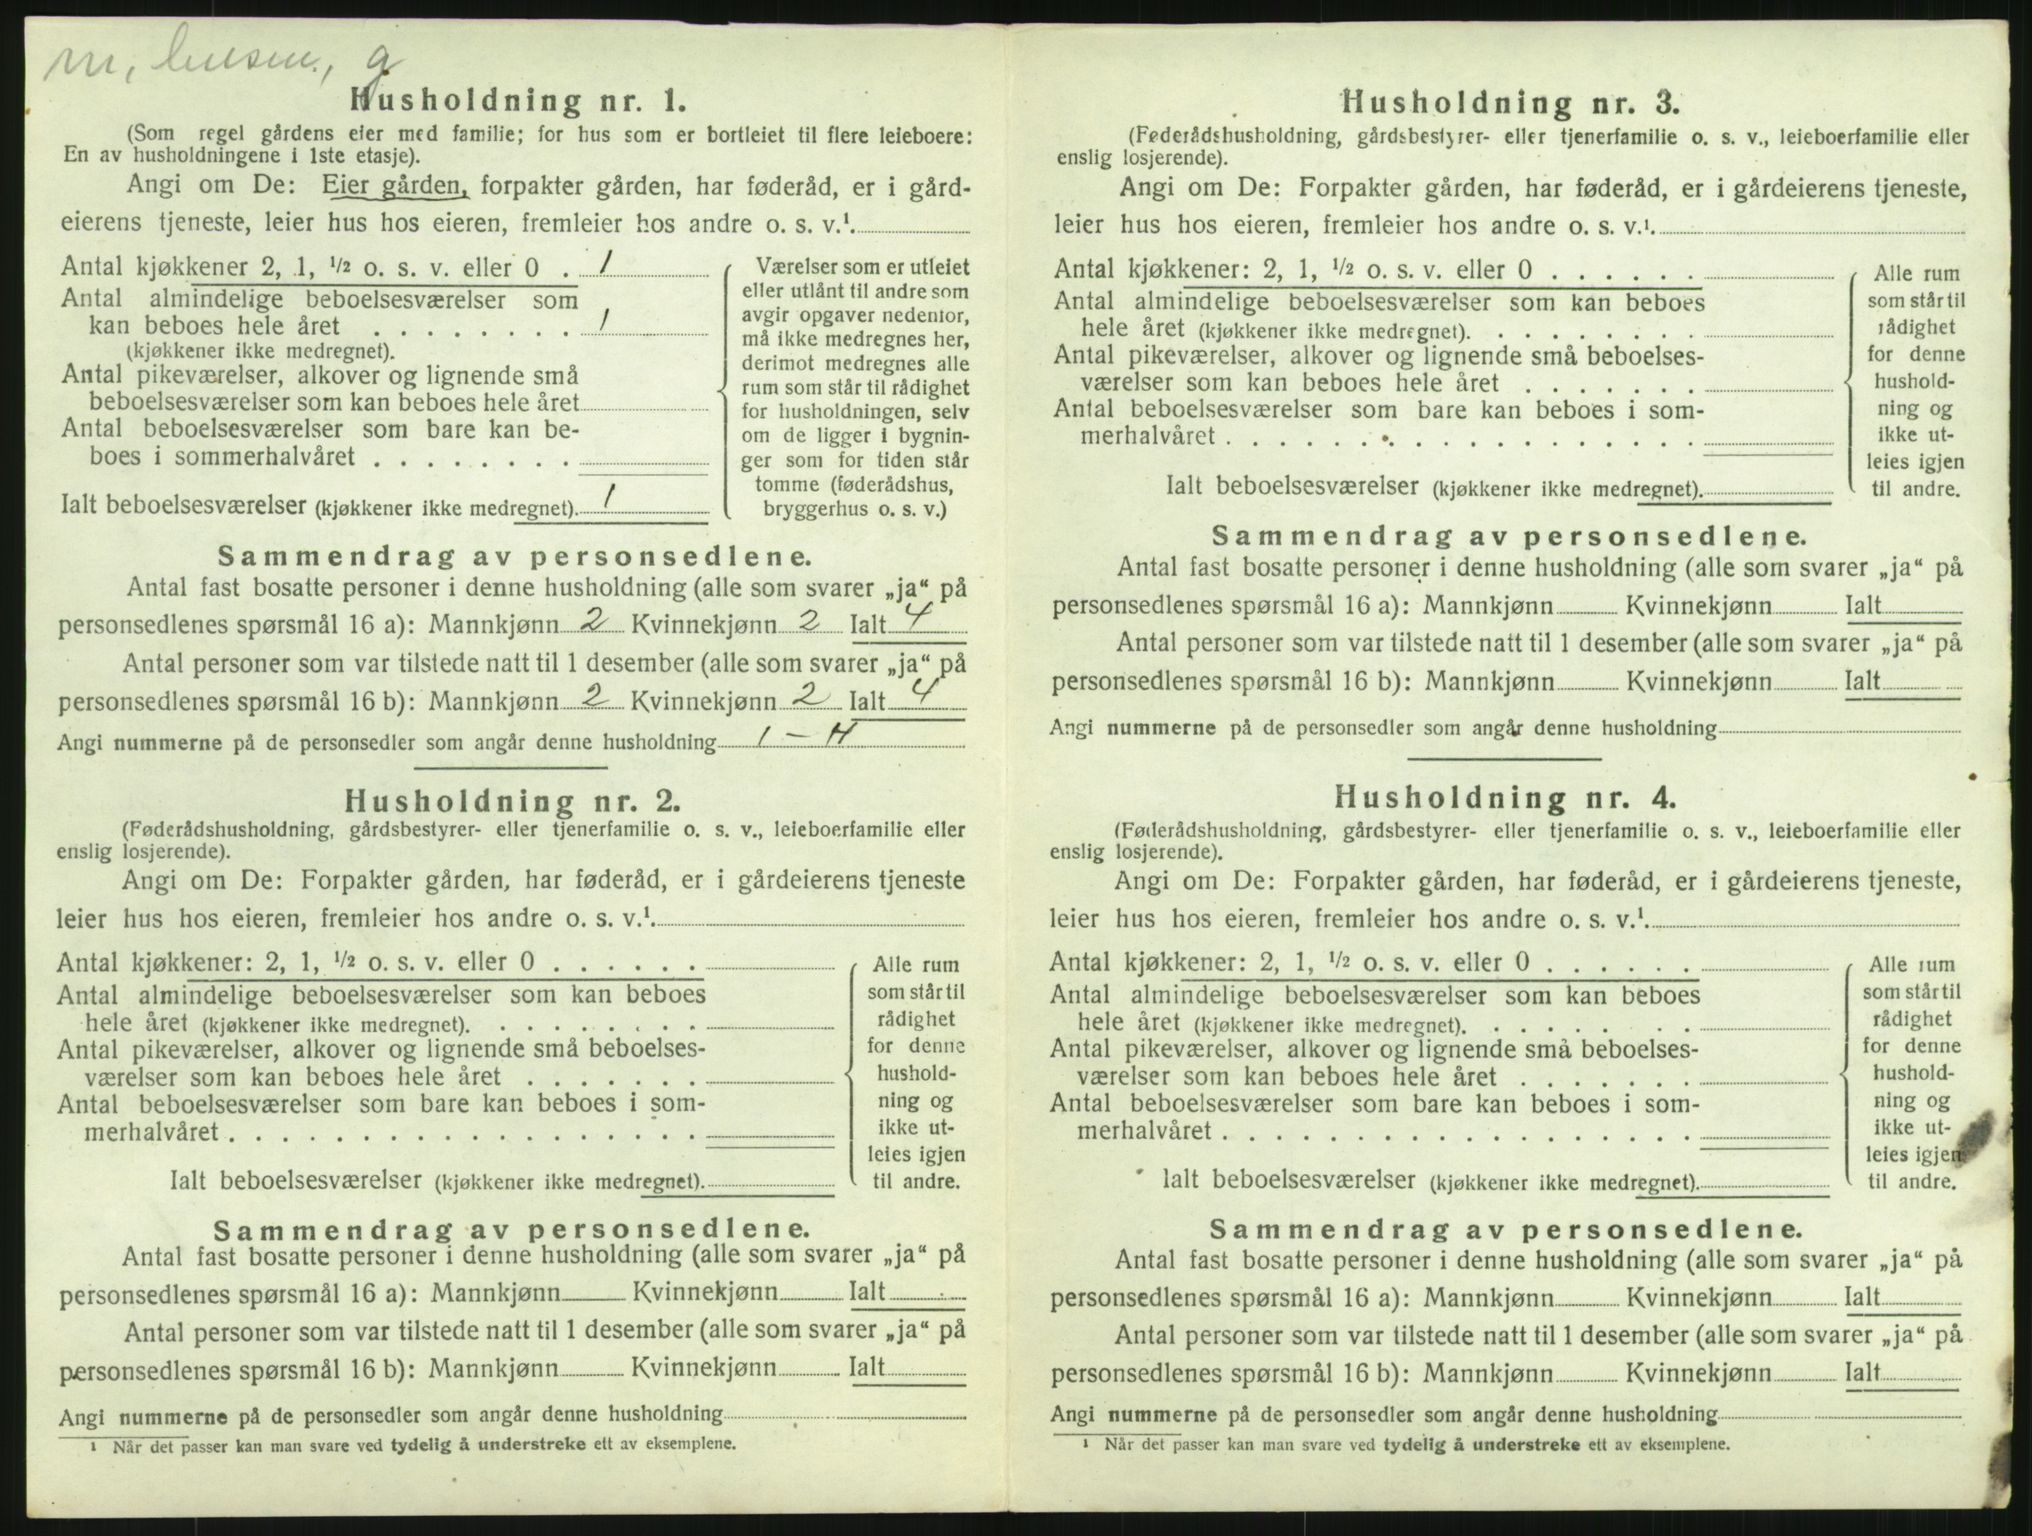 Husholdning nr. 1.
(Som regel gårdens eier med familie; for hus som er bortleiet til flere leieboere:
En av husholdningene i 1ste etasje).
Angi om De: Eier gården, forpakter gården, har føderåd, er i gård-
eierens tjeneste, leier hus hos eieren, fremleier hos andre o. s. v.¹.
Antal kjøkkener 2, 1, ½ o. s. v. eller 0 . 1
Antal almindelige beboelsesværelser som
kan beboes hele året . . . . . . . . 1
(kjøkkener ikke medregnet).
Antal pikeværelser, alkover og lignende små
beboelsesværelser som kan beboes hele året
Antal beboelsesværelser som bare kan be-
boes i sommerhalvåret . . . . . . . .
Ialt beboelsesværelser (kjøkkener ikke medregnet). 1
Værelser som er utleiet
eller utlånt til andre som
avgir opgaver nedenfor,
må ikke medregnes her,
derimot medregnes alle
rum som står til rådighet
for husholdningen, selv
om de ligger i bygnin-
ger som for tiden står
tomme (føderådshus,
bryggerhus o. s. v.)
Sammendrag av personsedlene.
Antal fast bosatte personer i denne husholdning (alle som svarer „ja“ på
personsedlenes spørsmål 16 a): Mannkjønn 2 Kvinnekjønn 2 Ialt 4
Antal personer som var tilstede natt til 1 desember (alle som svarer „ja“ på
personsedlenes spørsmål 16 b): Mannkjønn 2 Kvinnekjønn 2 Ialt 4
Angi nummerne på de personsedler som angår denne husholdning 1 – 4
Husholdning nr. 2.
(Føderådshusholdning, gårdsbestyrer- eller tjenerfamilie o. s. v., leieboerfamilie eller
enslig losjerende).
Angi om De: Forpakter gården, har føderåd, er i gårdeierens tjeneste
leier hus hos eieren, fremleier hos andre o. s. v.¹.
Antal kjøkkener: 2, 1, ½ o. s. v. eller 0 . . . . . .
Antal almindelige beboelsesværelser som kan beboes
hele året (kjøkkener ikke medregnet). . . . . . . . .
Antal pikeværelser, alkover og lignende små beboelses-
værelser som kan beboes hele året . . . . . . .
Antal beboelsesværelser som bare kan beboes i som-
merhalvåret . . . . . . . . . . . . . . . . . .
Ialt beboelsesværelser (kjøkkener ikke medregnet).
Alle rum
som står til
rådighet
for denne
hushold-
ning og
ikke ut-
leies igjen
til andre.
Sammendrag av personsedlene.
Antal fast bosatte personer i denne husholdning (alle som svarer „ja“ på
personsedlenes spørsmål 16 a): Mannkjønn Kvinnekjønn Ialt
Antal personer som var tilstede natt til 1 desember (alle som svarer „ja“ på
personsedlenes spørsmål 16 b): Mannkjønn Kvinnekjønn Ialt
Angi nummerne på de personsedler som angår denne husholdning
¹ Når det passer kan man svare ved tydelig å understreke ett av eksemplene.
Husholdning nr. 3.
(Føderådshusholdning, gårdsbestyrer- eller tjenerfamilie o. s. v., leieboerfamilie eller
enslig losjerende).
Angi om De: Forpakter gården, har føderåd, er i gårdeierens tjeneste,
leier hus hos eieren, fremleier hos andre o. s. v.¹.
Antal kjøkkener: 2, 1, ½ o. s. v. eller 0 . . . . . .
Antal almindelige beboelsesværelser som kan beboes
hele året (kjøkkener ikke medregnet). . . . . . . . .
Antal pikeværelser, alkover og lignende små beboelses-
værelser som kan beboes hele året . . . . . . .
Antal beboelsesværelser som bare kan beboes i som-
merhalvåret . . . . . . . . . . . . . . . . . .
Ialt beboelsesværelser (kjøkkener ikke medregnet).
Alle rum
som står til
rådighet
for denne
hushold-
ning og
ikke ut-
leies igjen
til andre.
Sammendrag av personsedlene.
Antal fast bosatte personer i denne husholdning (alle som svarer „ja“ på
personsedlenes spørsmål 16 a): Mannkjønn Kvinnekjønn Ialt
Antal personer som var tilstede natt til 1 desember (alle som svarer „ja“ på
personsedlenes spørsmål 16 b): Mannkjønn Kvinnekjønn Ialt
Angi nummerne på de personsedler som angår denne husholdning
Husholdning nr. 4.
(Føderådshusholdning, gårdsbestyrer- eller tjenerfamilie o. s. v., leieboerfamilie eller
enslig losjerende).
Angi om De: Forpakter gården, har føderåd, er i gårdeierens tjeneste,
leier hus hos eieren, fremleier hos andre o. s. v.¹.
Antal kjøkkener: 2, 1, ½ o. s. v. eller 0 . . . . . .
Antal almindelige beboelsesværelser som kan beboes
hele året (kjøkkener ikke medregnet). . . . . . . .
Antal pikeværelser, alkover og lignende små beboelses-
værelser som kan beboes hele året . . . . . . .
Antal beboelsesværelser som bare kan beboes i som-
merhalvåret . . . . . . . . . . . . . . . . . .
Ialt beboelsesværelser (kjøkkener ikke medregnet).
Alle rum
som står til
rådighet
for denne
hushold-
ning og
ikke ut-
leies igjen
til andre.
Sammendrag av personsedlene.
Antal fast bosatte personer i denne husholdning (alle som svarer „ja“ på
personsedlenes spørsmål 16 a): Mannkjønn Kvinnekjønn Ialt
Antal personer som var tilstede natt til 1 desember (alle som svarer „ja“ på
personsedlenes spørsmål 16 b): Mannkjønn Kvinnekjønn Ialt
Angi nummerne på de personsedler som angår denne husholdning
¹ Når det passer kan man svare ved tydelig å understreke ett av eksemplene.